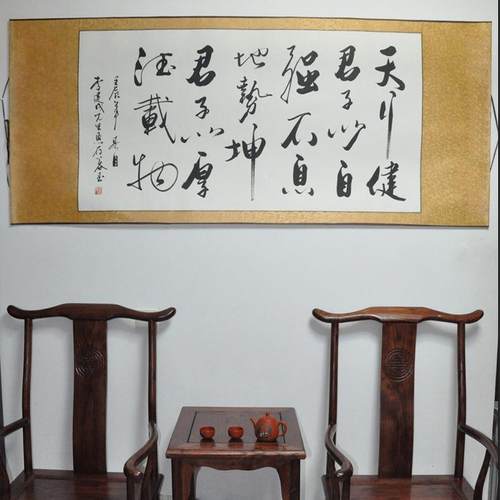 天行健
君子以自
强不息
地勢坤
君子以厚
德載物
壬辰年